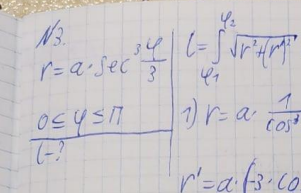 №3.
r=a·sec³ φ/3
0≤φ≤π
l-?
l=∫_{φ₁}^{φ₂} √(r²+(r')²)
1) r=a· 1/cos³
r'=a·(-3·co